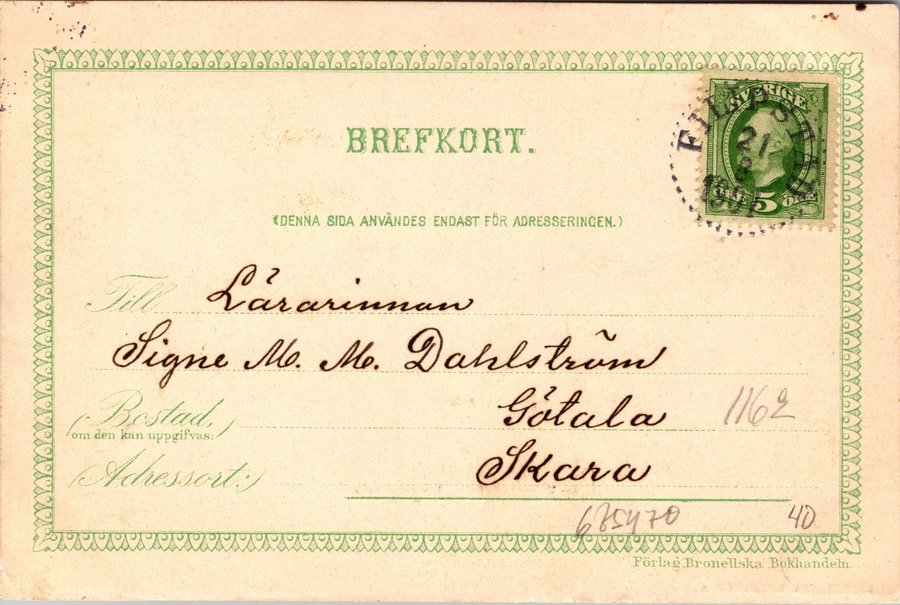 BREFKORT.
(DENNA SIDA ANVÄNDES ENDAST FÖR ADRESSERINGEN.)
SVERIGE
21
5
Till Lärarinnan
Signe M. M. Dahlström
Götala
1162
(Bostad,
om den kan uppgifvas:)
Skara
(Adressort:)
675470
40
Förlag, Bronellska Bokhandeln.